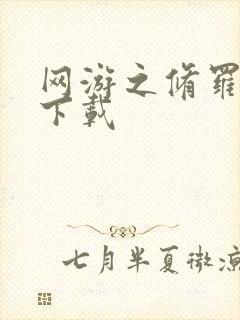 网游之脩羅
下載
七月半夏微凉